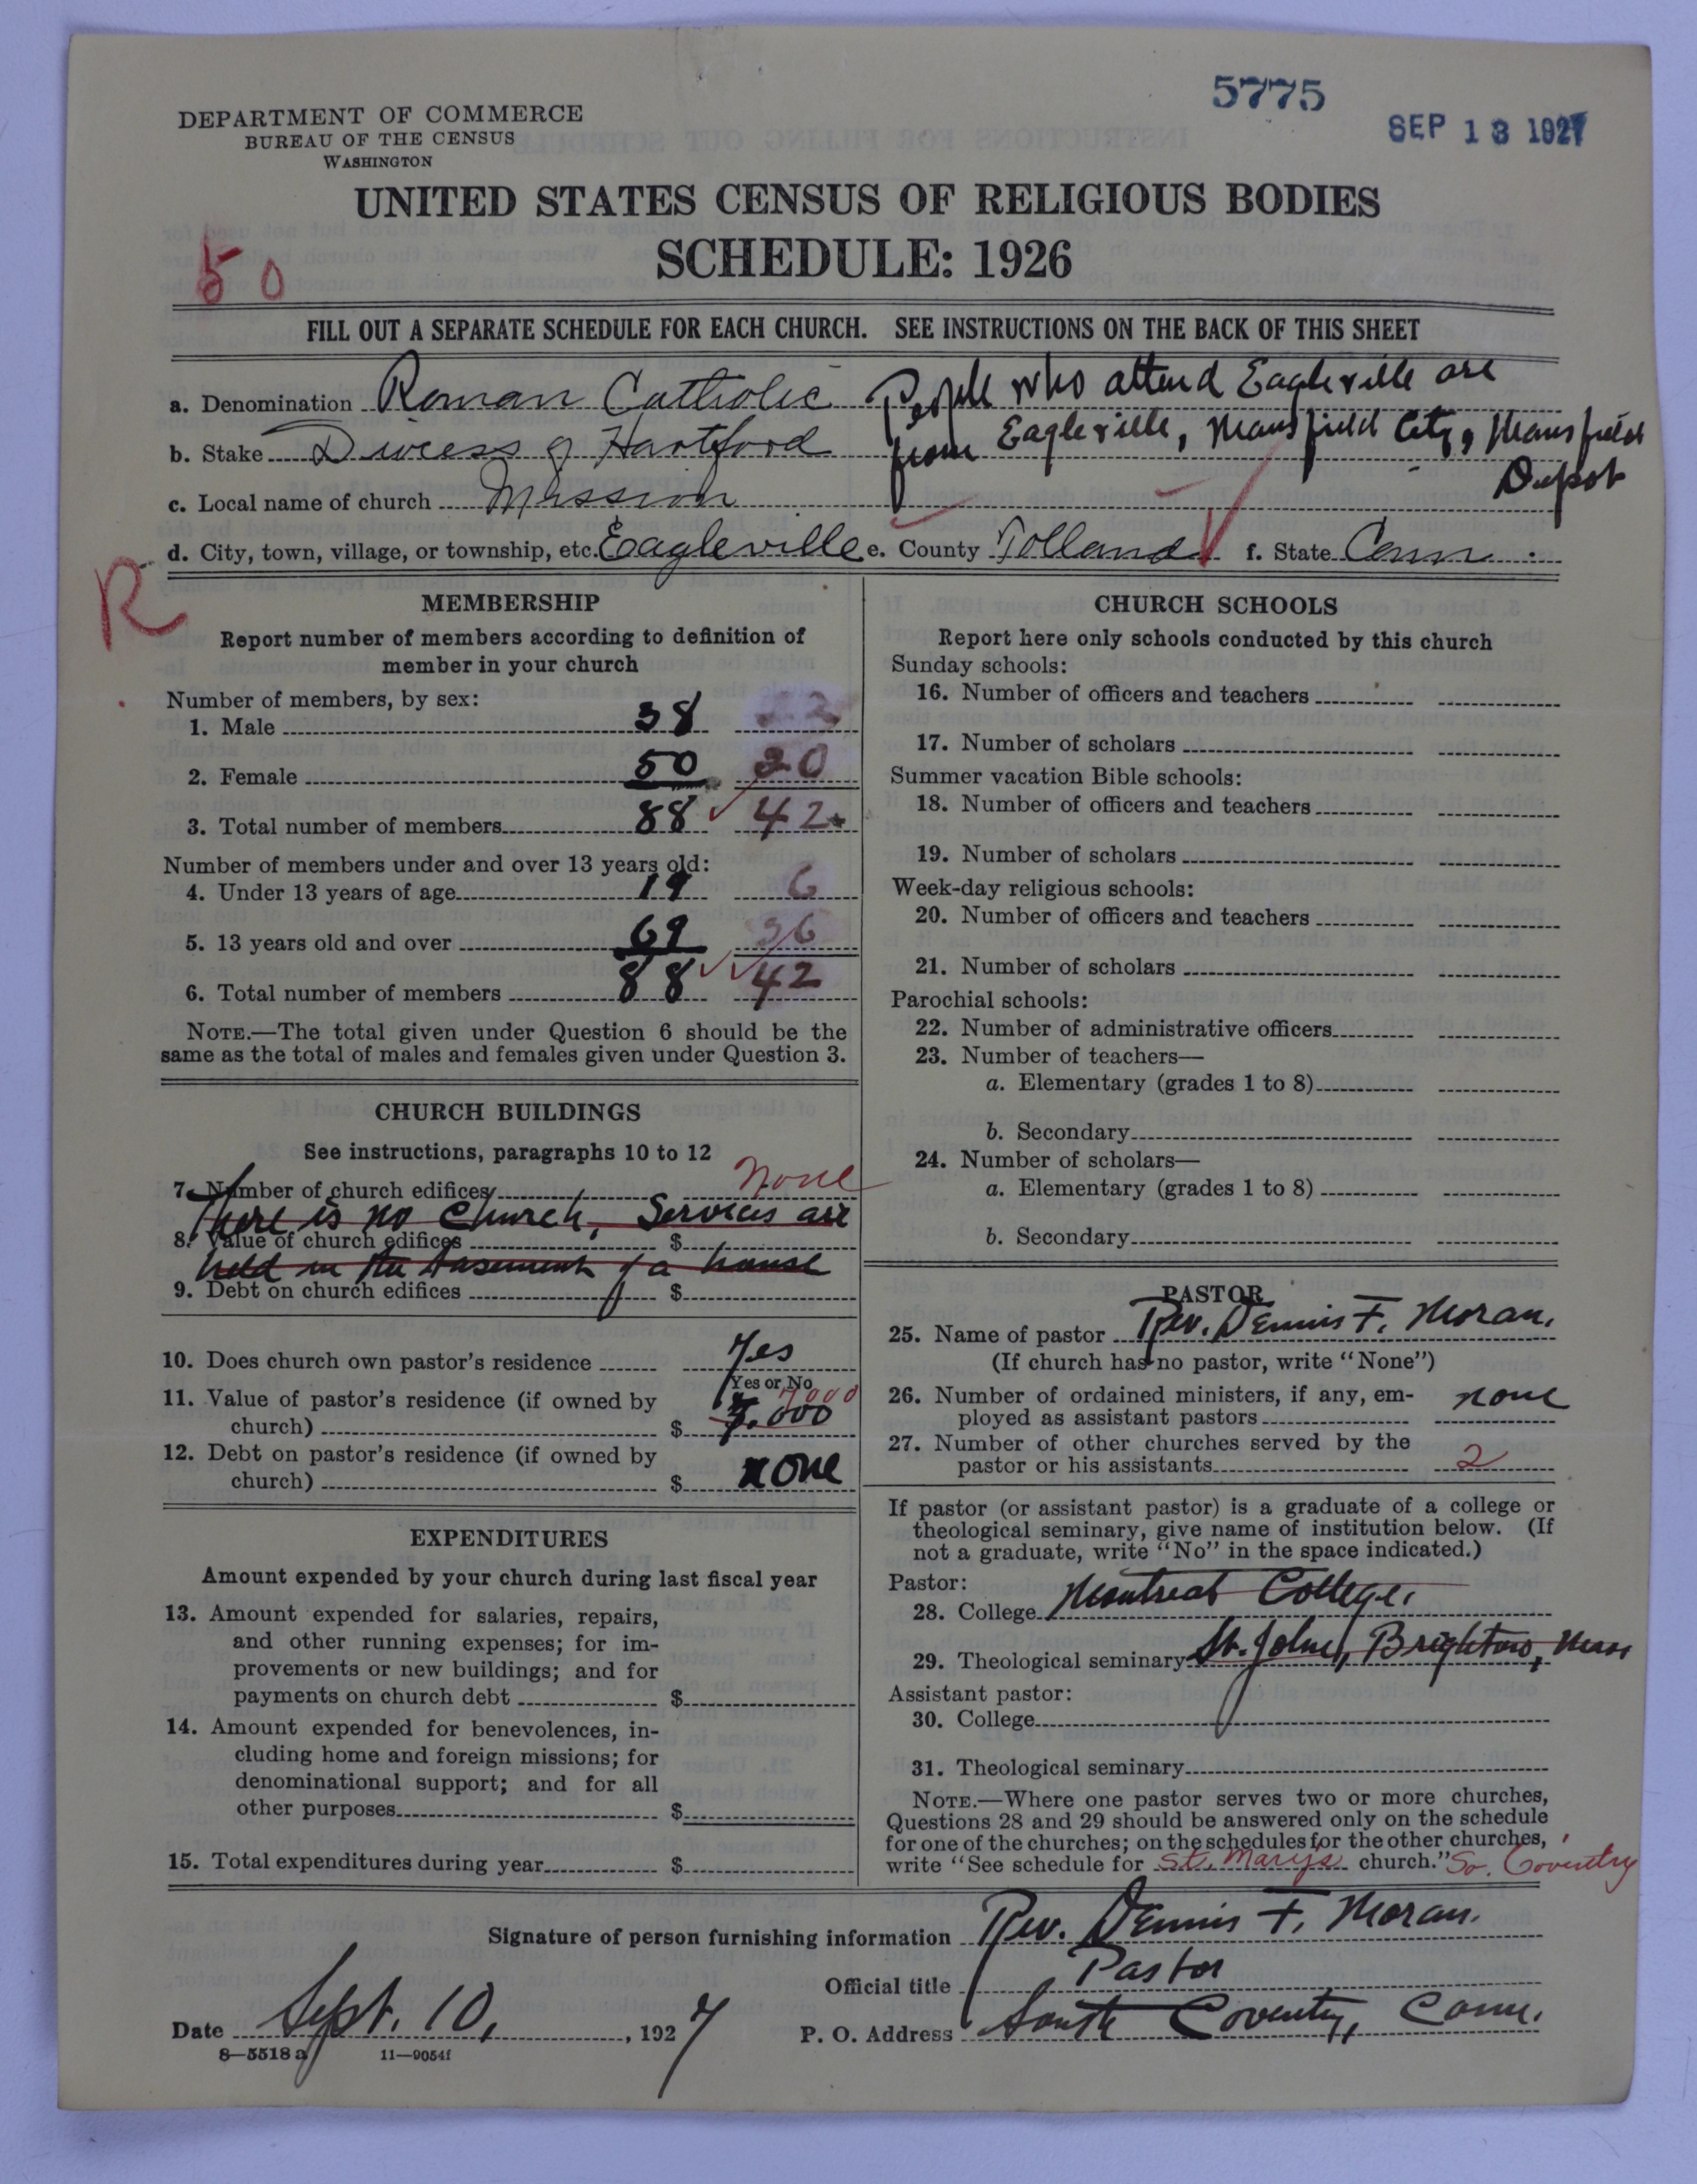 5775
SEP 13 1927
DEPARTMENT OF COMMERCE
BUREAU OF THE CENSUS
WASHINGTON
UNITED STATES CENSUS OF RELIGIOUS BODIES
SCHEDULE: 1926
50
FILL OUT A SEPARATE SCHEDULE FOR EACH CHURCH. SEE INSTRUCTIONS ON THE BACK OF THIS SHEET
a. Denomination Roman Catholic People who attend Eagleville are
b. Stake Diocess of Hartford from Eagleville, Mansfield City, Mansfield
Depot
c. Local name of church Mission
d. City, town, village, or township, etc. Eagleville e. County Tolland f. State Conn.
R
MEMBERSHIP
Report number of members according to definition of
member in your church
Number of members, by sex:
1. Male 38 22
2. Female 50 20
3. Total number of members 88 42
Number of members under and over 13 years old:
4. Under 13 years of age 19 6
5. 13 years old and over 69 36
6. Total number of members 88 42
NOTE.—The total given under Question 6 should be the
same as the total of males and females given under Question 3.
CHURCH BUILDINGS
See instructions, paragraphs 10 to 12
7. Number of church edifices none
There is no church, Services are
8. Value of church edifices $
held in the basement of a house
9. Debt on church edifices $
10. Does church own pastor's residence Yes
Yes or No
11. Value of pastor's residence (if owned by 7000
church) $
12. Debt on pastor's residence (if owned by
church) $ none
EXPENDITURES
Amount expended by your church during last fiscal year
13. Amount expended for salaries, repairs,
and other running expenses; for im-
provements or new buildings; and for
payments on church debt $
14. Amount expended for benevolences, in-
cluding home and foreign missions; for
denominational support; and for all
other purposes $
15. Total expenditures during year $
CHURCH SCHOOLS
Report here only schools conducted by this church
Sunday schools:
16. Number of officers and teachers
17. Number of scholars
Summer vacation Bible schools:
18. Number of officers and teachers
19. Number of scholars
Week-day religious schools:
20. Number of officers and teachers
21. Number of scholars
Parochial schools:
22. Number of administrative officers
23. Number of teachers—
a. Elementary (grades 1 to 8)
b. Secondary
24. Number of scholars—
a. Elementary (grades 1 to 8)
b. Secondary
PASTOR
25. Name of pastor Rev. Dennis F. Moran.
(If church has no pastor, write "None")
26. Number of ordained ministers, if any, em-
ployed as assistant pastors none
27. Number of other churches served by the
pastor or his assistants 2
If pastor (or assistant pastor) is a graduate of a college or
theological seminary, give name of institution below. (If
not a graduate, write "No" in the space indicated.)
Pastor:
28. College Montreal College.
29. Theological seminary St. John, Brighton, Mass
Assistant pastor:
30. College
31. Theological seminary
NOTE.—Where one pastor serves two or more churches,
Questions 28 and 29 should be answered only on the schedule
for one of the churches; on the schedules for the other churches,
write "See schedule for St. Mary's church." So. Coventry
Signature of person furnishing information Rev. Dennis F. Moran.
Official title Pastor
Date Sept. 10, 1927 P. O. Address South Coventry, Conn.
8—5518 a 11—9054f